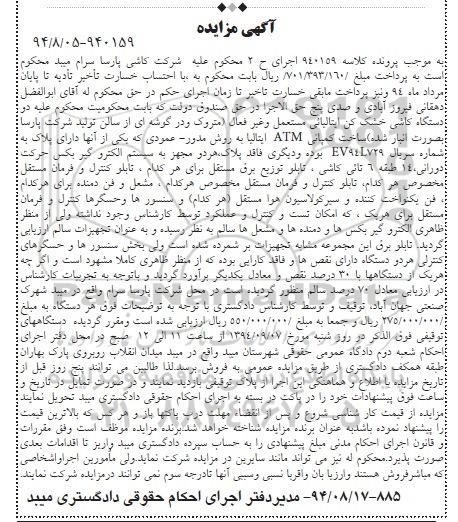 آگهی مزایده
۹۴/۸/۰۵-۹۴۰۱۵۹
به موجب پرونده کلاسه ۹۴۰۱۵۹ اجرای ح ۲ محکوم علیه شرکت کاشی پارسا سرام میبد محکوم
است به پرداخت مبلغ /۷۰۱/۳۹۳/۱۶۰ ریال بابت محکوم به ،با احتساب خسارت تأخیر تأدیه تا پایان
مرداد ماه ۹۴ ونیز پرداخت مابقی خسارت تاخیر تا زمان اجرای حکم در حق محکوم له آقای ابوالفضل
دهقانی فیروز آبادی و صدی پنج حق الاجرا در حق صندوق دولت که بابت محکومیت محکوم علیه دو
دستگاه کاشی خشک کن ایتالیائی مستعمل وغیر فعال (متروک ودر گوشه ای از سالن تولید شرکت پارسا
بصورت انبار شده)ساخت کمپانی ATM ایتالیا به روش مدور– عمودی که یکی از آنها دارای پلاک به
شماره سریال EV۹۴L۷۲۹ بوده ودیگری فاقد پلاک،هردو مجهز به سیستم الکترو گیر بکس حرکت
دورانی،۱۴ طبقه ۶ تائی کاشی ، تابلو توزیع برق مستقل برای هر کدام ، تابلو کنترل و فرمان مستقل
مخصوص هرکدام، تابلو کنترل و فرمان مستقل مخصوص هرکدام ، مشعل و فن دمنده برای هرکدام
، فن یکنواخت کننده و سیرکولاسیون هوا مستقل (هر کدام) و سنسور ها وحسگرها کنترل و فرمان
مستقل برای هریک ، که امکان تست و کنترل و عملکرد توسط کارشناس وجود نداشته ولی از منظر
ظاهری الکترو گیر بکس ها و دمنده ها و مشعل ها سالم به نظر رسیده و به عنوان تجهیزات سالم ارزیابی
گردید، تابلو برق این مجموعه مشابه تجهیزات بر شمرده شده است ولی بخش سنسور ها و حسگرهای
کنترلی هردو دستگاه دارای نقص ها و فاقد کارایی بوده که از منظر ظاهری کاملا مشهود است و اگر چه
هریک از دستگاهها با ۳۰ درصد نقص و معادل یکدیگر برآورد گردید و باتوجه به تجربیات کارشناس
در ارزیابی معادل ۷۰ درصد سالم منظور گردید،است در محل شرکت پارسا سرام واقع در میبد شهرک
صنعتی جهان آباد، توقیف و توسط کارشناس دادگستری با توجه به توضیحات فوق هر دستگاه به مبلغ
/۲۷۵/۰۰۰/۰۰۰ ریال و جمعا به مبلغ /۵۵۰/۰۰۰/۰۰۰ ریال ارزیابی شده است ومقرر گردیده دستگاههای
توقیفی فوق الذکر در روز شنبه مورخ ۱۳۹۴/۰۹/۰۷ از ساعت ۱۱ الی ۱۲ صبح در محل دفتر اجرای
احکام شعبه دوم دادگاه عمومی حقوقی شهرستان میبد واقع در میبد میدان انقلاب روبروی پارک بهاران
طبقه همکف دادگستری از طریق مزایده عمومی به فروش برسد.لذا طالبین می توانند پنج روز قبل از
تاریخ مزایده با اطلاع و هماهنگی این اجرا از پلاک توقیفی بازدید نمایند و در صورت تمایل در تاریخ و
ساعت فوق پیشنهادات خود را در پاکت در بسته به اجرای احکام حقوقی دادگستری میبد تحویل نمایند
مزایده از قیمت کار شناسی شروع و پس از انقضاء مهلت در ب پاکتها باز و هر کس که بالاترین قیمت
را پیشنهاد نموده باشدبه عنوان برنده مزایده شناخته خواهد شد.برنده مزایده موظف است وفق مقررات
و قانون اجرای احکام مدنی مبلغ پیشنهادی را به حساب سپرده دادگستری میبد واریز تا اقدامات بعدی
صورت پذیرد.محکوم له نیز می تواند مانند سایرین در مزایده شرکت نماید.ولی مأمورین اجراواشخاصی
که مباشرفروش هستند وارزیا بان واقربا نسبی وسببی آنها تادرجه سوم نمی توانند درمزایده شرکت نمایند.
۹۴/۰۸/۱۷-۸۸۵- مدیردفتر اجرای احکام حقوقی دادگستری میبد